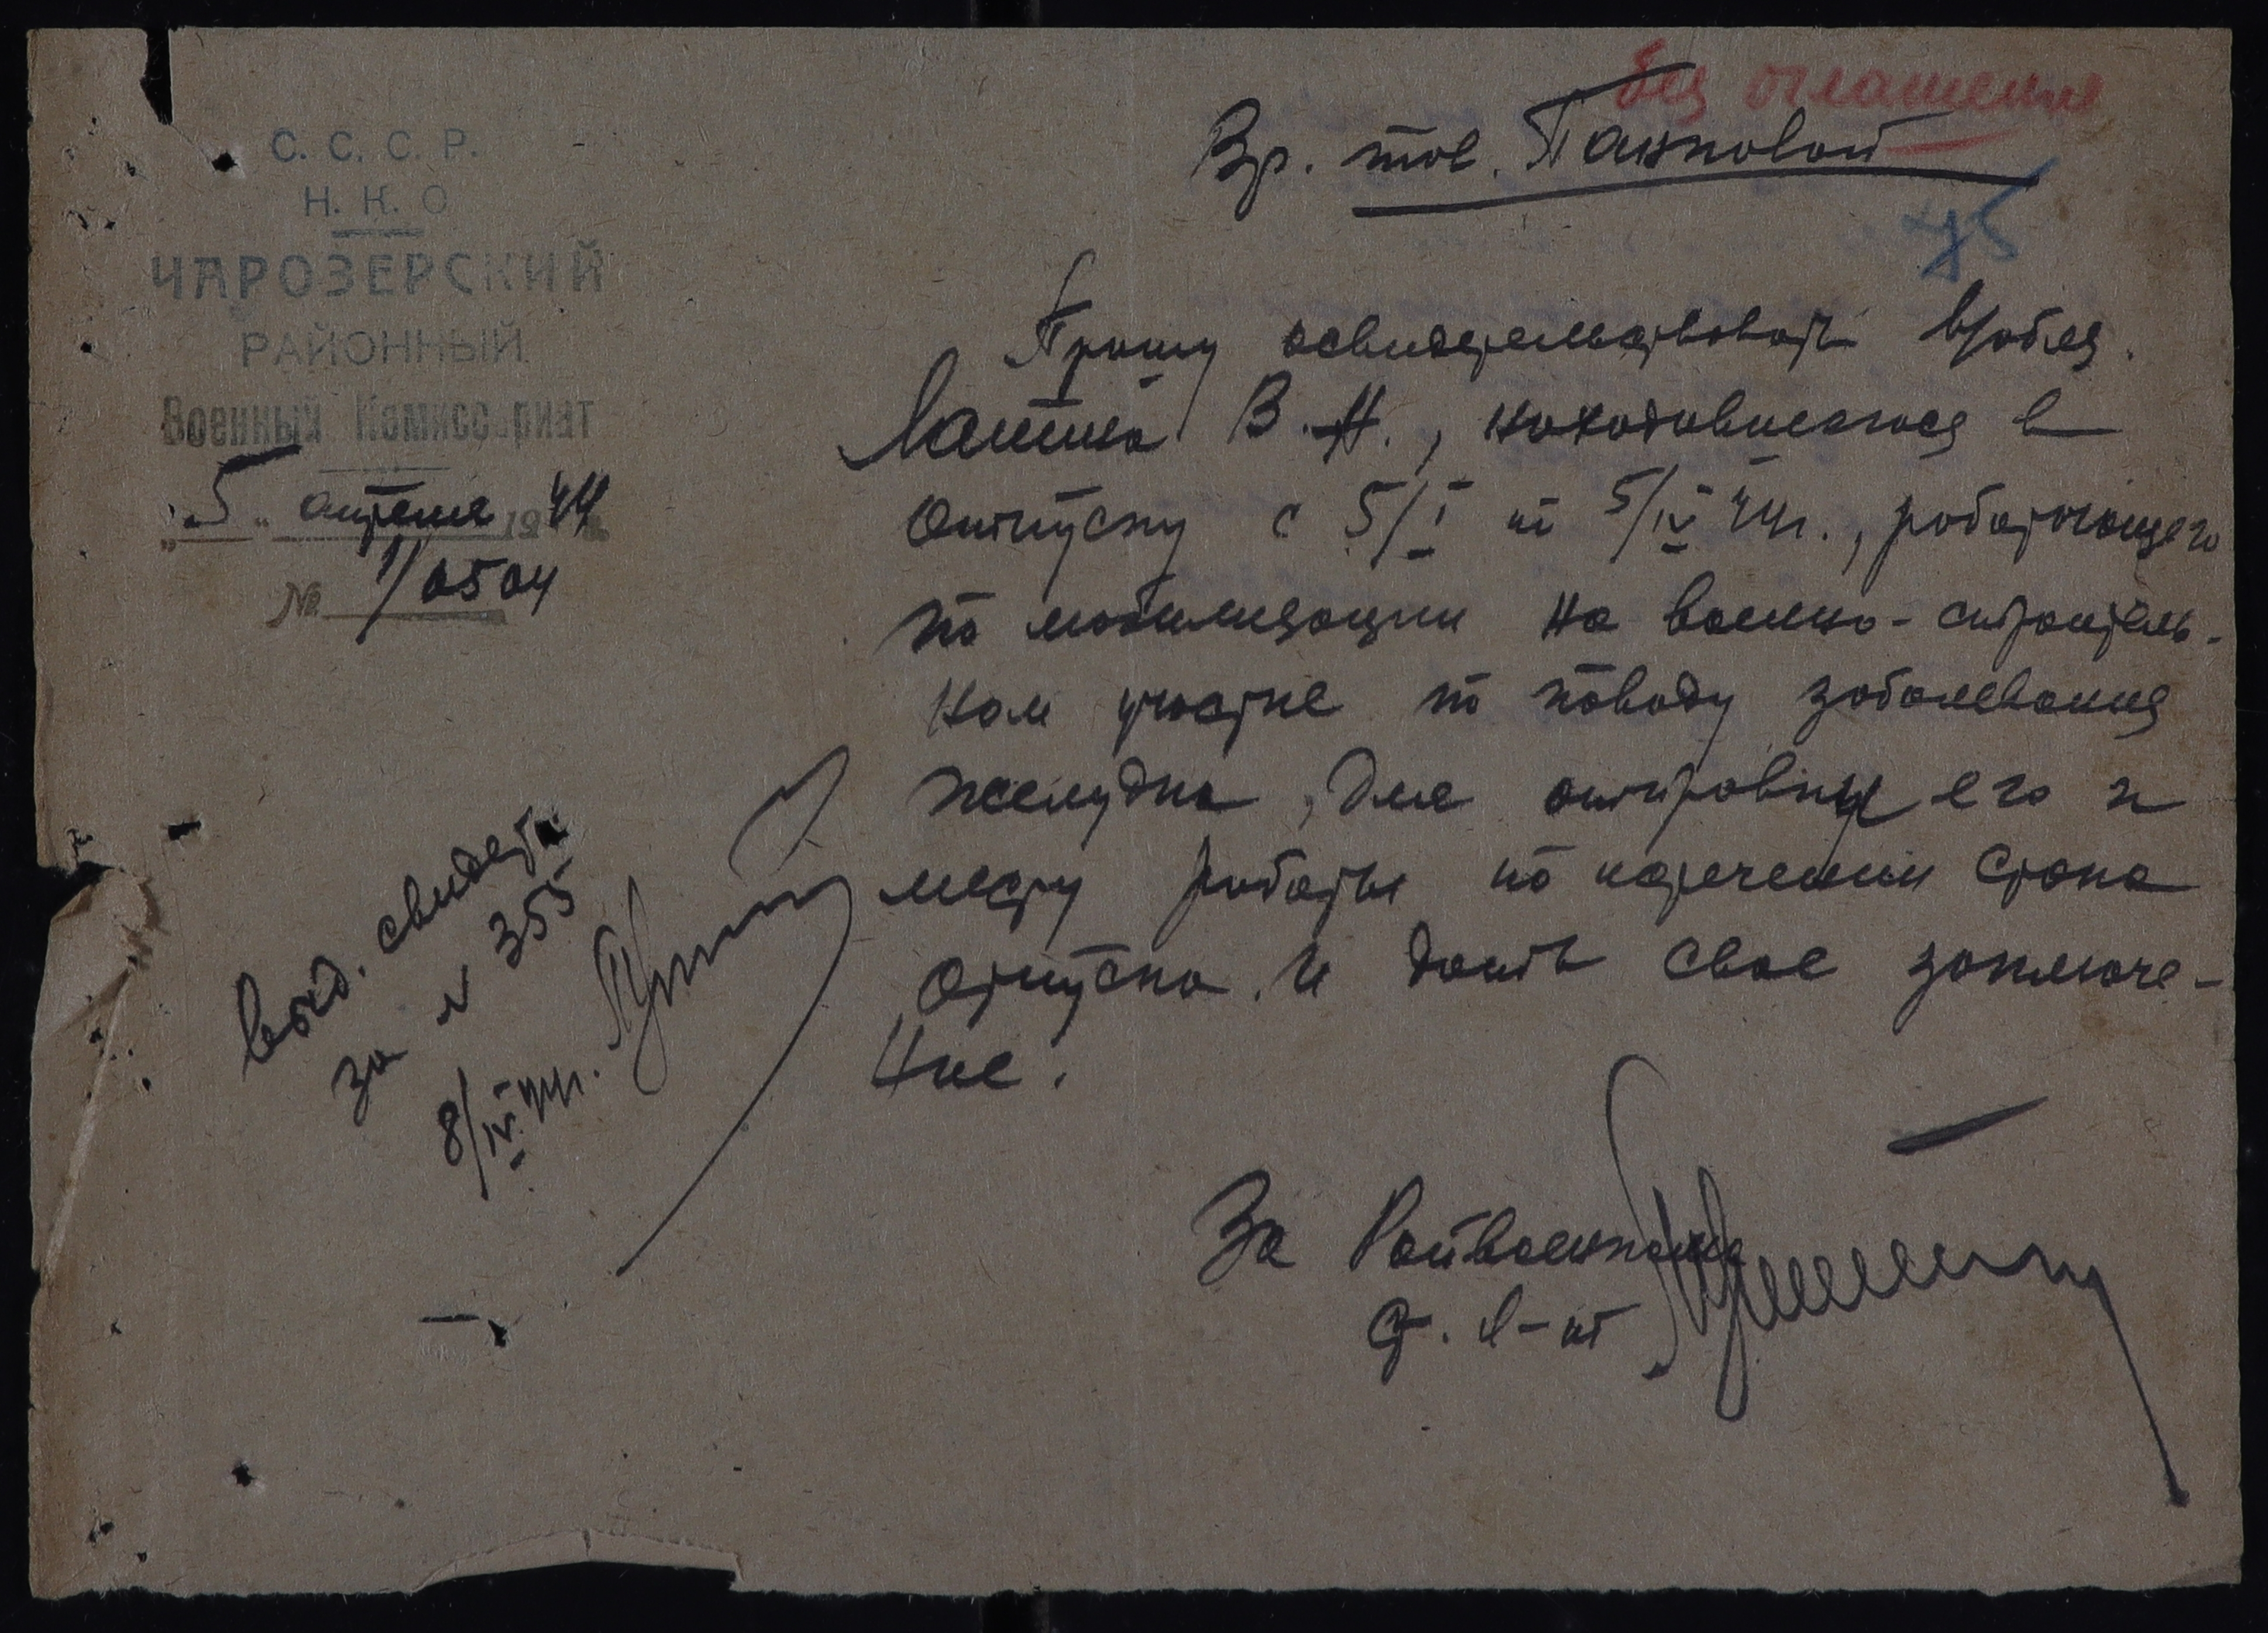 С. С. С. Р.
Н. К. О
ЧАРОЗЕРСКИЙ
РАЙОННЫЙ
Военный Комиссариат
"5" апреля 1944
№ 1/0504
без оглашения
Вр. тов. Панковой
45
Прошу освидетельствовать
В. Н., находившегося в
отпуску с 5/I по 5/IV 44г., работающего
по мобилизации на военно-строитель-
ном участке по поводу заболевания
желудка, для отправки его к
месту работы по истечении срока
отпуска. И дать свое заключе-
ние.
За Райвоенкома
Ст. л-нт
выд. свидет.
за № 355
8/IV 44г.